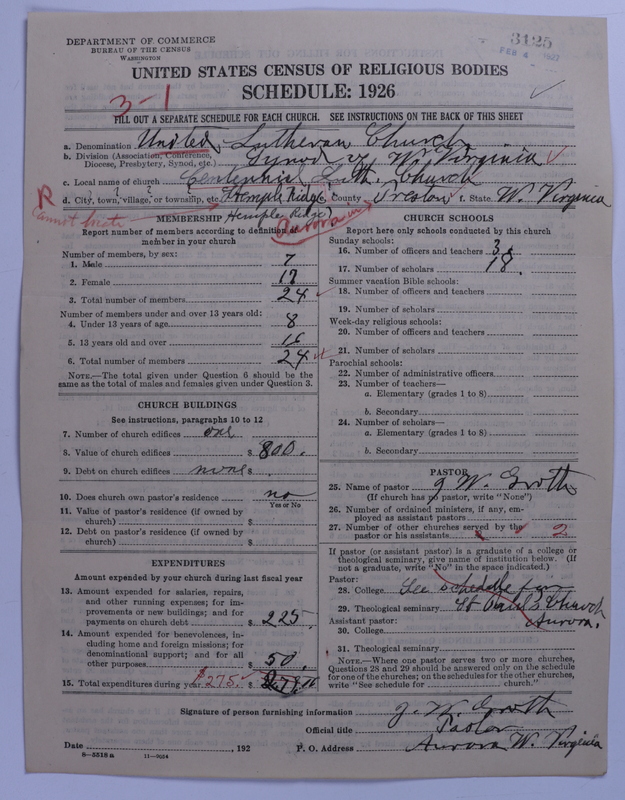 DEPARTMENT OF COMMERCE
BUREAU OF THE CENSUS
WASHINGTON
3125
FEB 4 1927
UNITED STATES CENSUS OF RELIGIOUS BODIES
SCHEDULE: 1926
3-1
FILL OUT A SEPARATE SCHEDULE FOR EACH CHURCH. SEE INSTRUCTIONS ON THE BACK OF THIS SHEET
a. Denomination United Lutheran Church
b. Division (Association, Conference, Diocese, Presbytery, Synod, etc.) Synod of W. Virginia
c. Local name of church Centennial Luth. Church
d. City, town, village, or township, etc. Hemple Ridge County Preston t. State W. Virginia
R
Cannot locate
(Hemple Ridge)
Aurora
MEMBERSHIP
Report number of members according to definition of member in your church
Number of members, by sex:
1. Male 7
2. Female 17
3. Total number of members 24
Number of members under and over 13 years old:
4. Under 13 years of age 8
5. 13 years old and over 16
6. Total number of members 24
NOTE.—The total given under Question 6 should be the same as the total of males and females given under Question 3.
CHURCH BUILDINGS
See instructions, paragraphs 10 to 12
7. Number of church edifices one
8. Value of church edifices $ 800.
9. Debt on church edifices none $
10. Does church own pastor's residence no
Yes or No
11. Value of pastor's residence (if owned by church) $
12. Debt on pastor's residence (if owned by church) $
EXPENDITURES
Amount expended by your church during last fiscal year
13. Amount expended for salaries, repairs, and other running expenses; for improvements or new buildings; and for payments on church debt $ 225.
14. Amount expended for benevolences, including home and foreign missions; for denominational support; and for all other purposes $ 50.
15. Total expenditures during year $275. $
CHURCH SCHOOLS
Report here only schools conducted by this church
Sunday schools:
16. Number of officers and teachers 3.
17. Number of scholars 18.
Summer vacation Bible schools:
18. Number of officers and teachers
19. Number of scholars
Week-day religious schools:
20. Number of officers and teachers
21. Number of scholars
Parochial schools:
22. Number of administrative officers
23. Number of teachers—
a. Elementary (grades 1 to 8)
b. Secondary
24. Number of scholars—
a. Elementary (grades 1 to 8)
b. Secondary
PASTOR
25. Name of pastor J W. Groth
(If church has no pastor, write "None")
26. Number of ordained ministers, if any, employed as assistant pastors
27. Number of other churches served by the pastor or his assistants 2
If pastor (or assistant pastor) is a graduate of a college or theological seminary, give name of institution below. (If not a graduate, write "No" in the space indicated.)
Pastor:
28. College See schedule for
29. Theological seminary St Paul's Church
Assistant pastor: Aurora.
30. College
31. Theological seminary
NOTE.—Where one pastor serves two or more churches, Questions 28 and 29 should be answered only on the schedule for one of the churches; on the schedules for the other churches, write "See schedule for ______ church."
Signature of person furnishing information J. W. Groth
Official title Pastor
Date ______, 192 P. O. Address Aurora W. Virginia
8—5518 a 11—9024